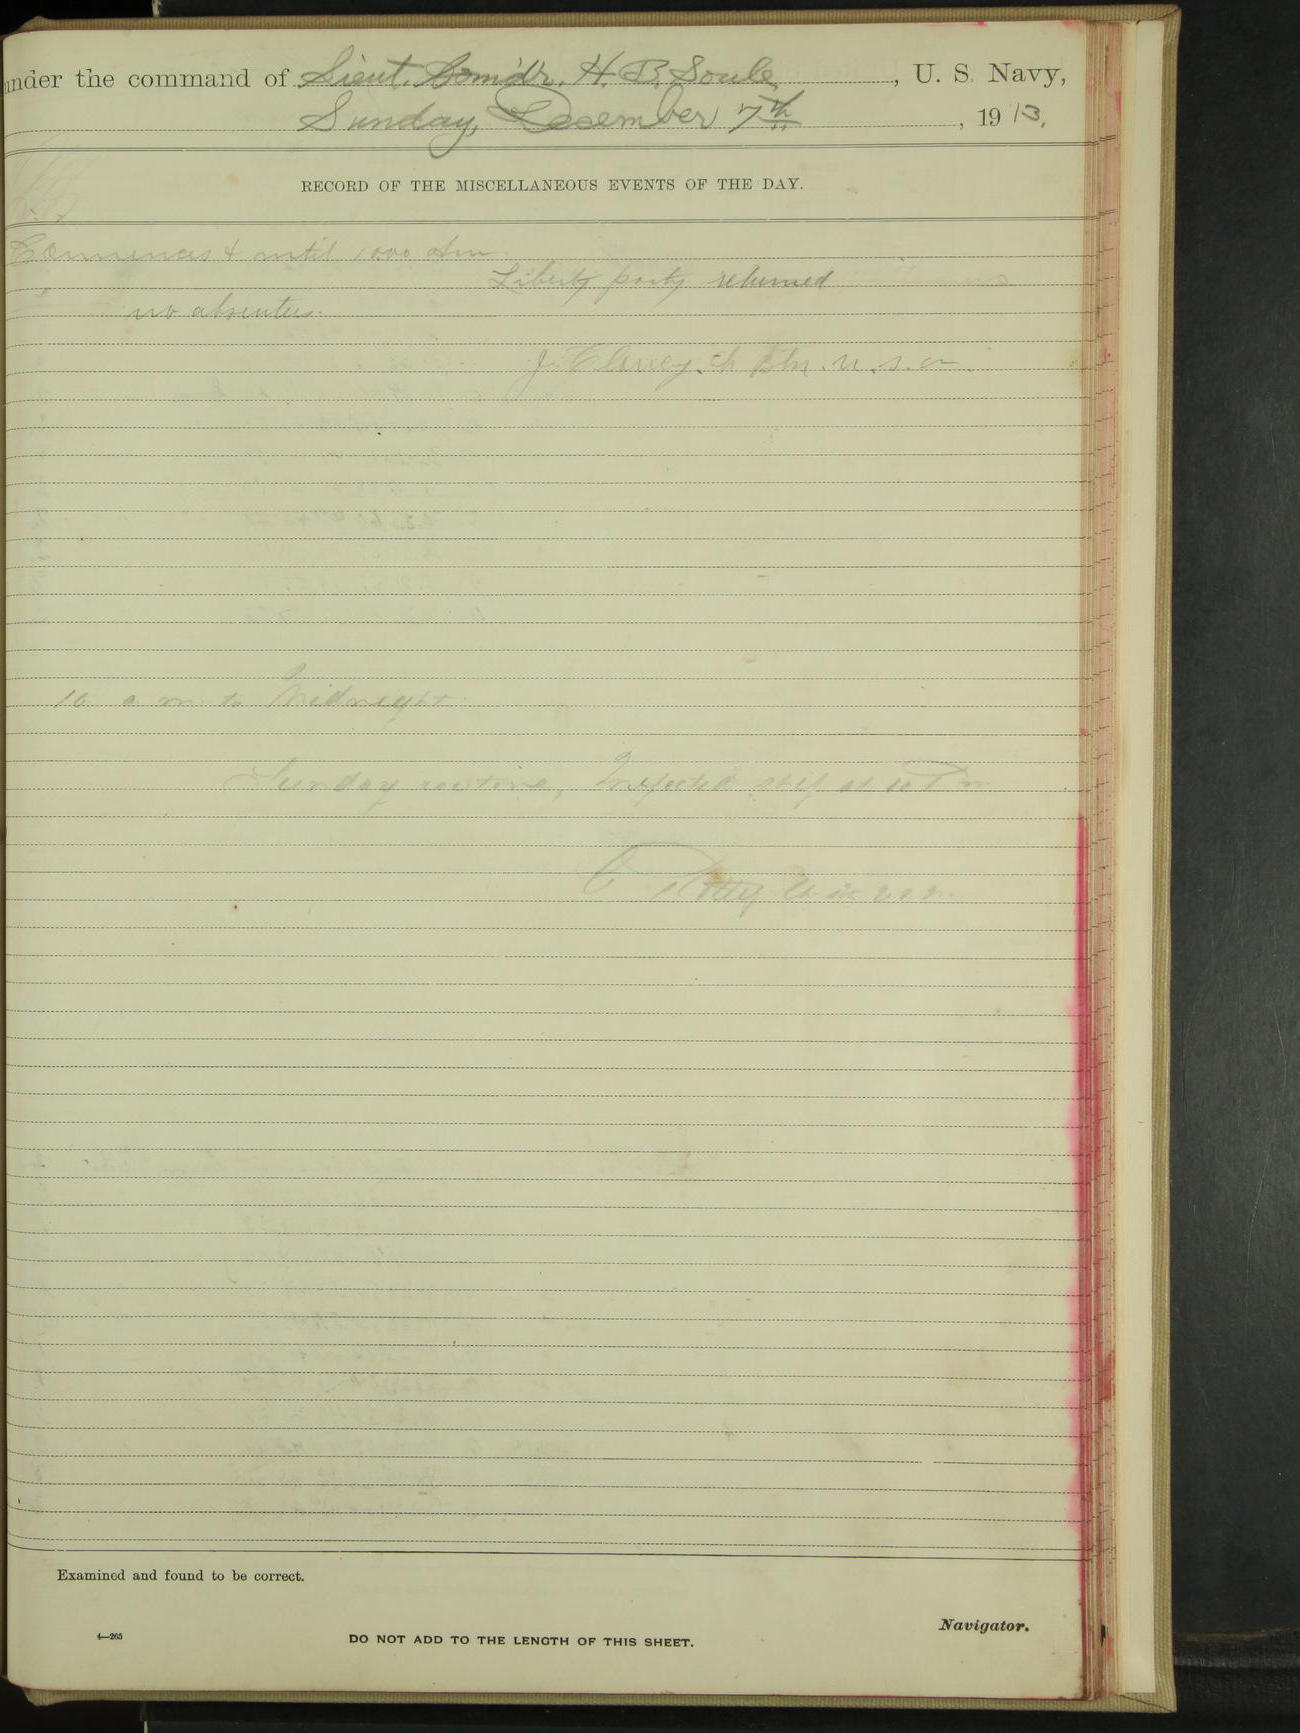 under the command of Lieut. Com'dr. H. B. Soule, U. S. Navy,
Sunday, December 7th, 1913.
RECORD OF THE MISCELLANEOUS EVENTS OF THE DAY.
Commences & until 1000 Am
Liberty party returned
no absentees.
J. Clancy, Ch Btn. U. S. N.
10 a m to Midnight
Sunday routine, Inspected ship at 10 P m
U.S.N.
Examined and found to be correct.
Navigator.
4—265
DO NOT ADD TO THE LENGTH OF THIS SHEET.